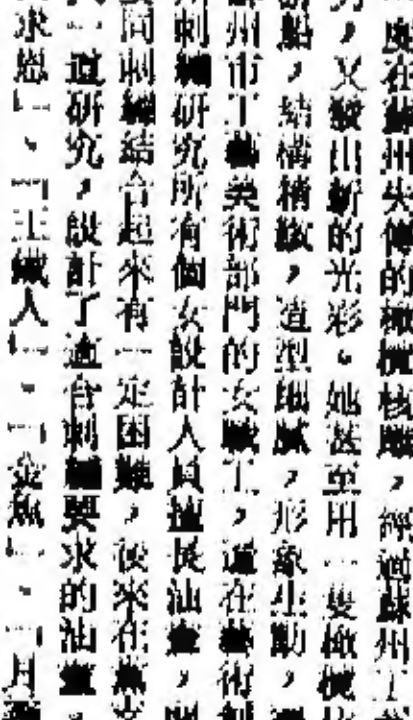 度在蘇州失傳的橄欖核雕，經過蘇州工
，又發出新的光彩。她甚至用一隻橄欖
船，結構精緻，造型細膩，形象生動，
州市工藝美術部門的女職工，還在藝術
刺繡研究所有個女設計人員擅長油畫，
同刺繡結合起來有一定困難，後來在
道研究，設計了適合刺繡要求的油畫。
求恩」、「王鐵人」、「金魚」、「月